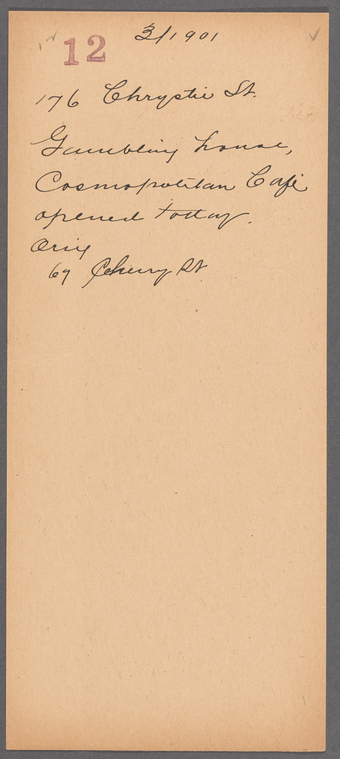 3/1901
12
176 Chrystie St.
Gambling house,
Cosmopolitan Café
opened today.
Orig
69 Cherry St